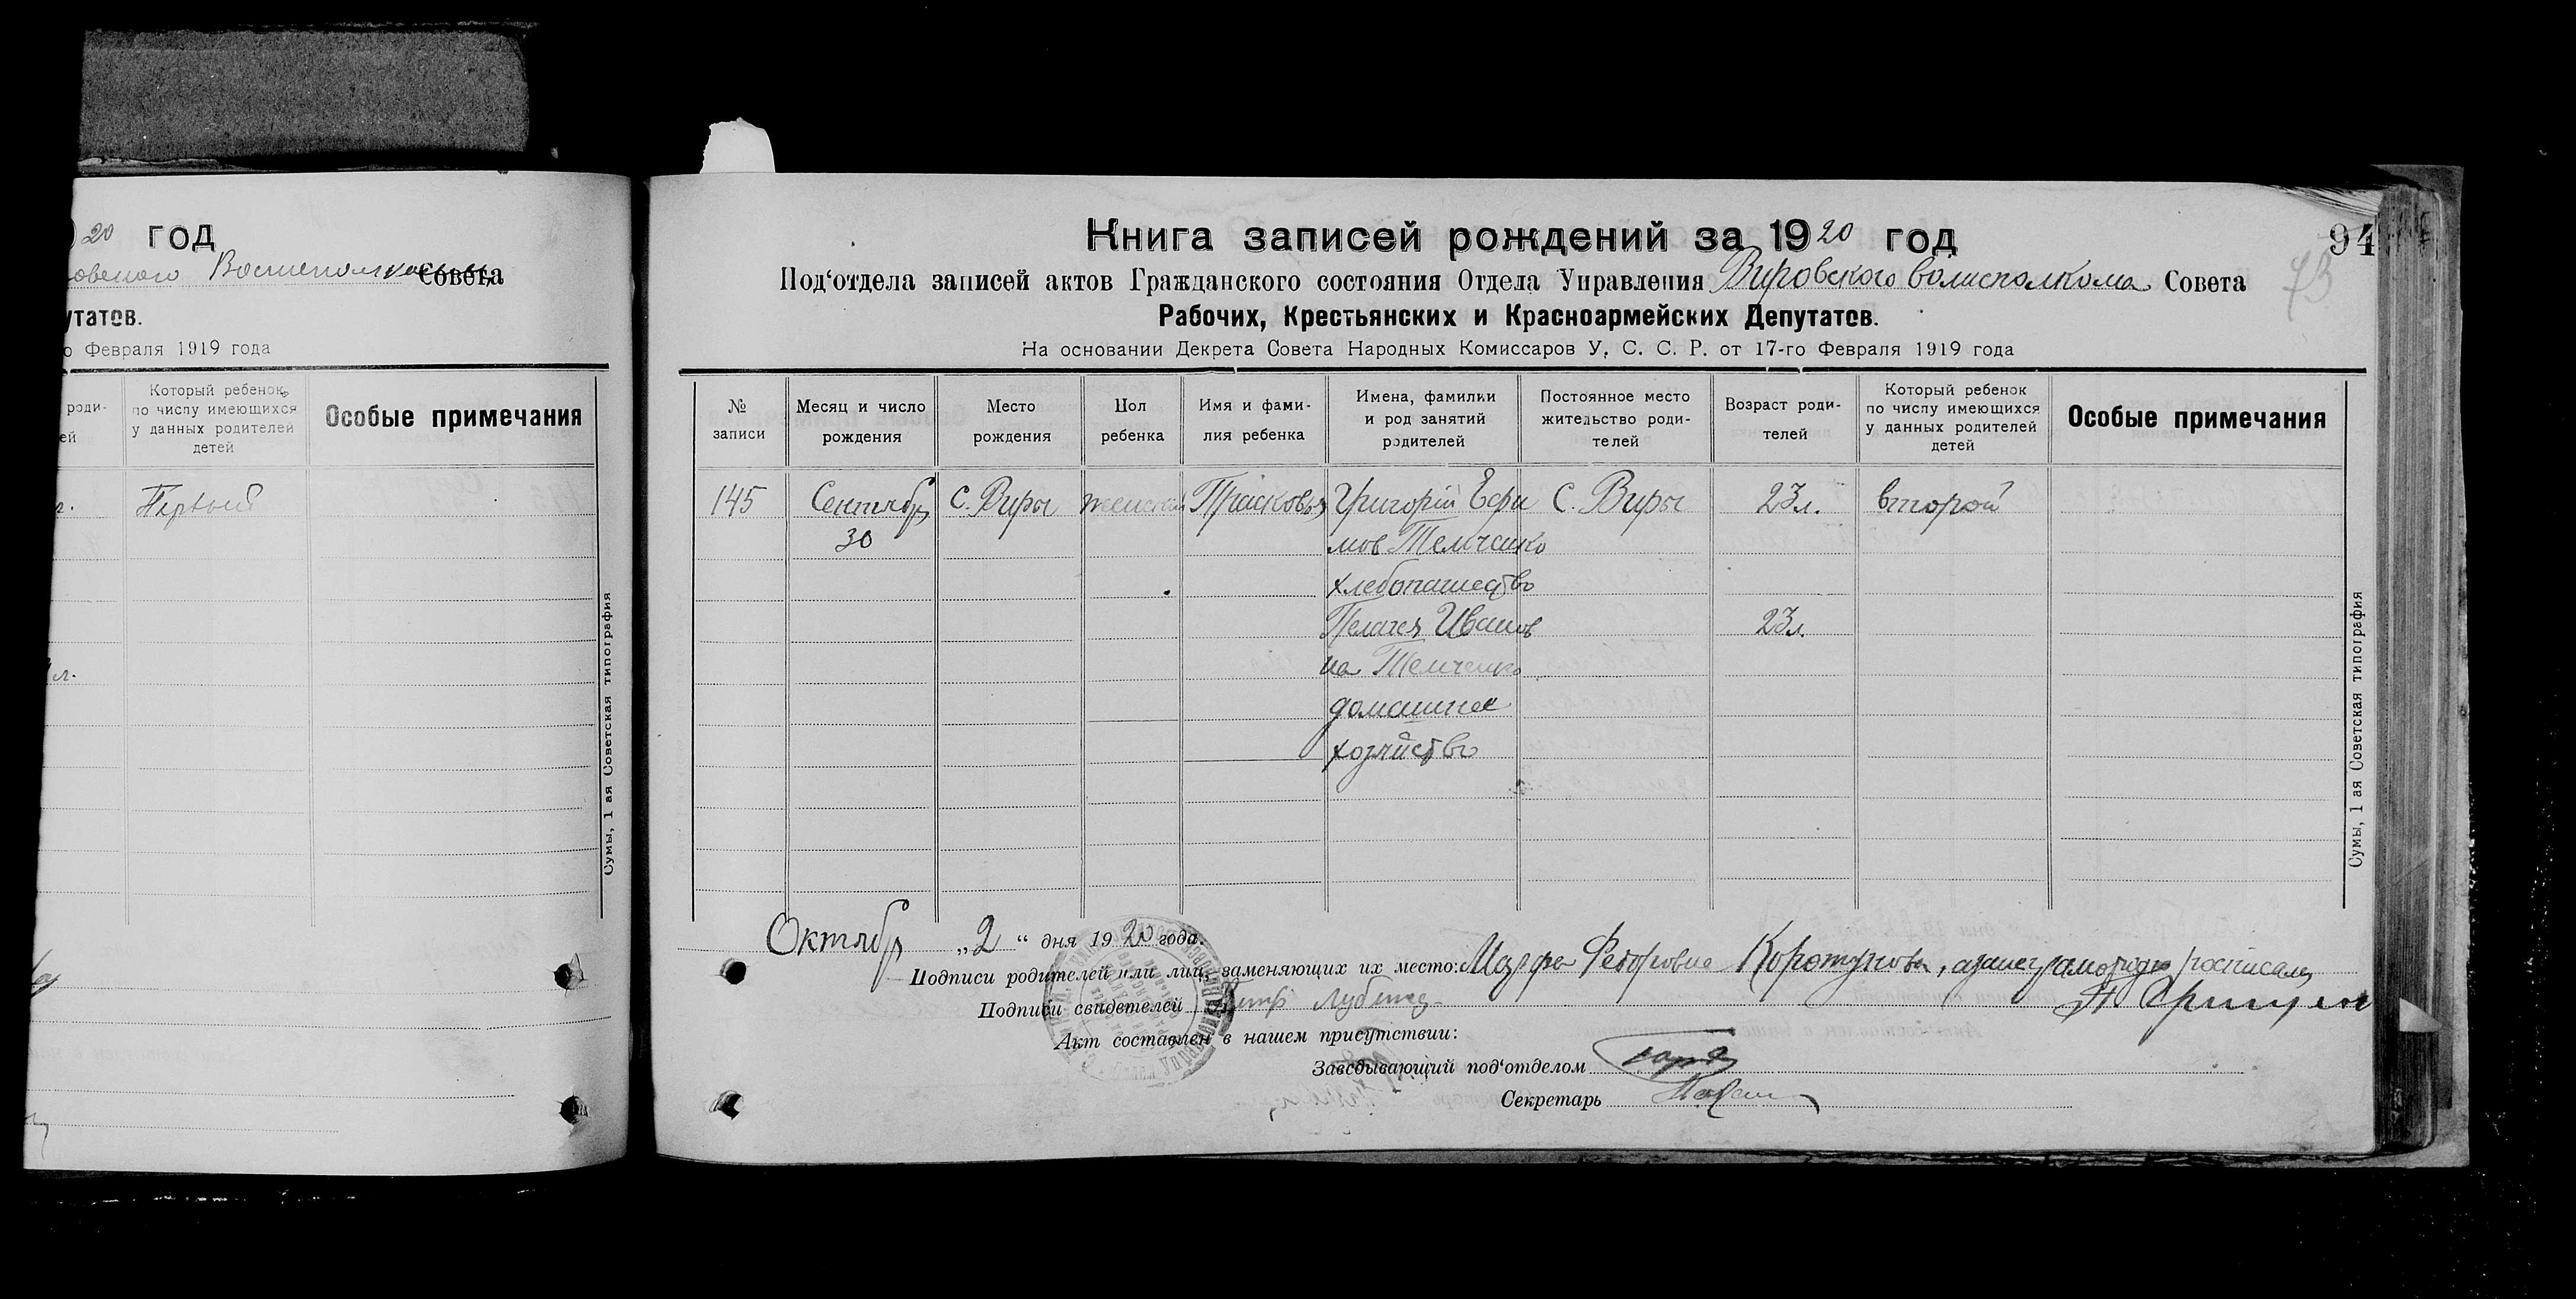 20 год
Совета
утатов.
о Февраля 1919 года
роди-
ей
Который ребенок
по числу имеющихся
у данных родителей
детей
Особые примечания
г.
Первый
л.
Сумы, 1 ая Советская типография
Книга записей рождений за 1920 год
94
73
Под'отдела записей актов Гражданского состояния Отдела Управления Вировского волисполкома Совета
Рабочих, Крестьянских и Красноармейских Депутатов.
На основании Декрета Совета Народных Комиссаров У. С. С. Р. от 17-го Февраля 1919 года
№
записи
Месяц и число
рождения
Место
рождения
Пол
ребенка
Имя и фами-
лия ребенка
Имена, фамилии
и род занятий
родителей
Постоянное место
жительство роди-
телей
Возраст роди-
телей
Который ребенок
по числу имеющихся
у данных родителей
детей
Особые примечания
145
Сентябрь
30
С. Виры
женский
Прасковья
Григорій Ефи
мов Темченко
хлебопашество
Пелагея Иванов
на Темченко
домашнее
хозяйство
С. Виры
23 л.
23 л.
второй
Сумы, 1 ая Советская типография
Октябрь „2“ дня 1920 года.
Подписи родителей или лиц, заменяющих их место: Марфа Федоровна Коротунова, расписался
Подписи свидетелей
Акт составлен в нашем присутствии:
Заведывающий под'отделом
Секретарь